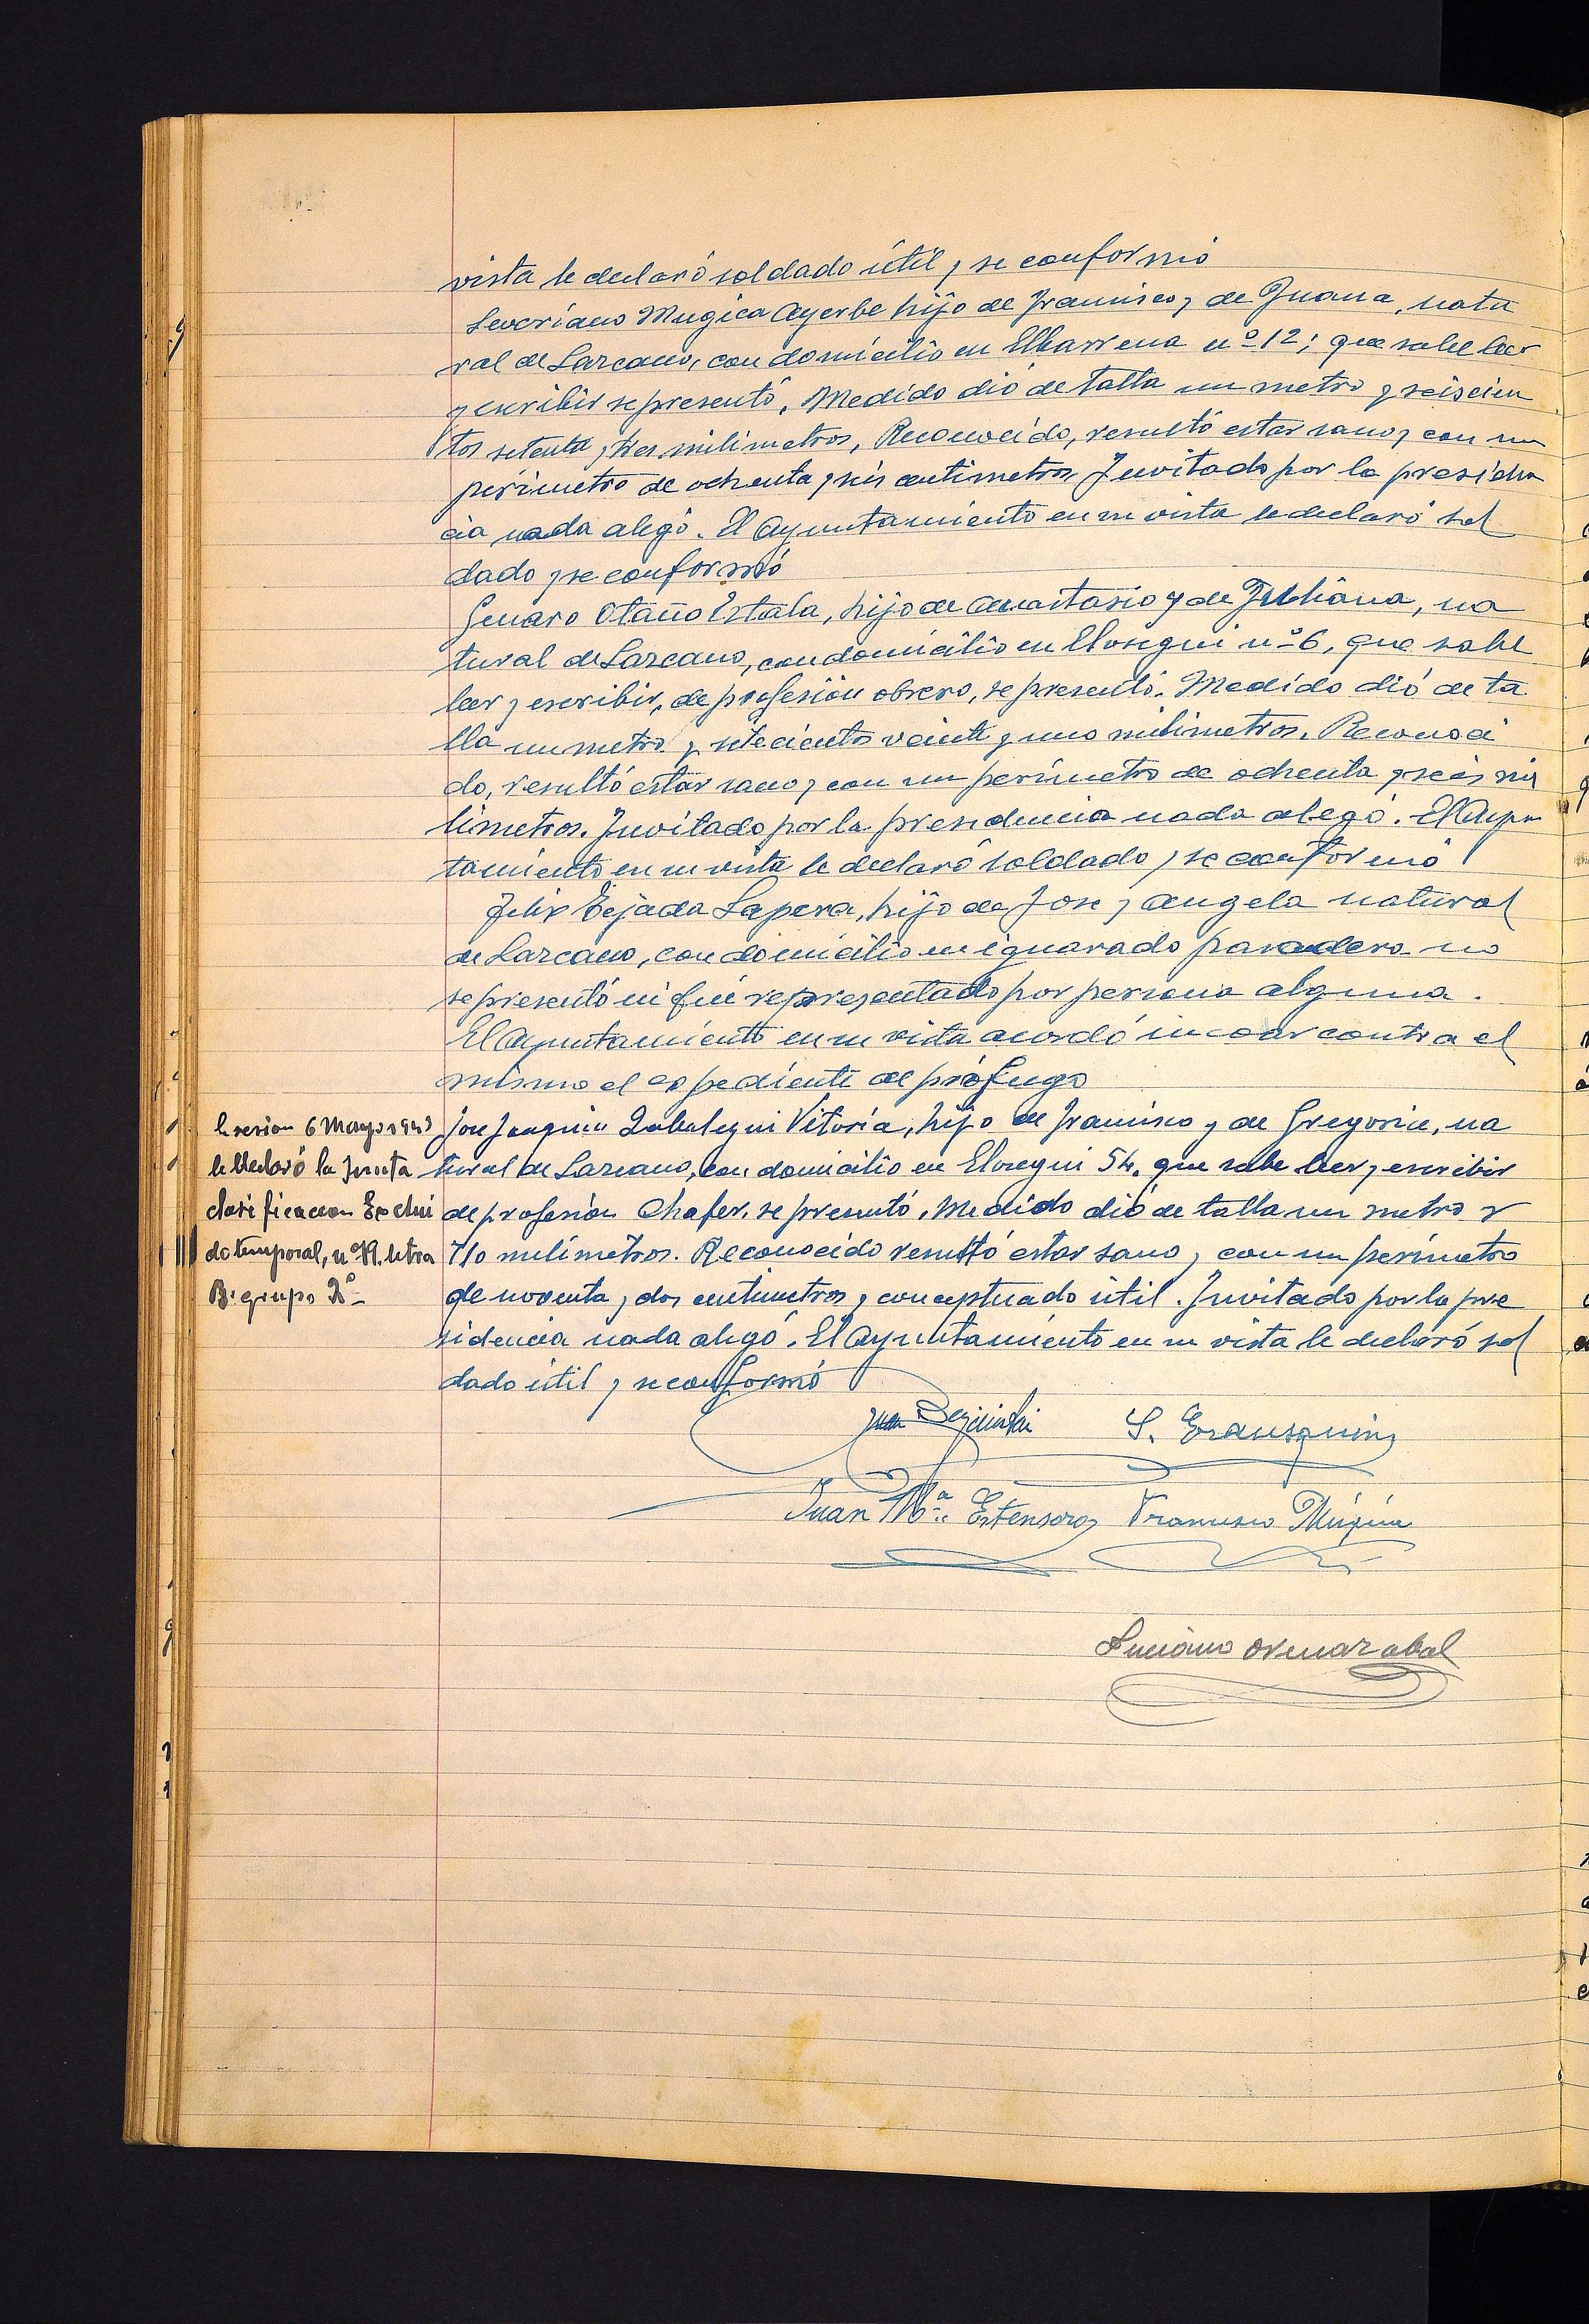 vista le declaró soldado útil y se conformó
Severiano Mugica Ayerbe hijo de Francisco y de Juana, natu
ral de Lazcano, con domicilio en Elbarrena nº 12; que sabe leer
y escribir se presentó. Medido dió de talla un metro y seiscien
tos setenta y tres milimetros. Reconocido, resultó estar sano y con un
perimetro de ochenta y seis centimetros. Invitado por la presiden
cia nada alegó. El Ayuntamiento en su vista le declaró sol
dado y se conformó
Genaro Otaño Estala, hijo de Anastasio y de Juliana, na
tural de Lazcano, con domicilio en Elosegui nº 6, que sabe
leer y escribir, de profesión obrero, se presentó. Medido dió de ta
lla un metro y setecientos veinte y uno milimetros. Reconoci
do, resultó estar sano y con un perimetro de ochenta y seis mi
limetros. Invitado por la presidencia nada alegó. El Ayun
tamiento en su vista le declaró soldado y se conformó
Felix Tejada Lapera, hijo de Jose y Angela natural
de Lazcano, con domicilio en ignorado paradero no
se presentó ni fué representado por persona alguna.
El Ayuntamiento en su vista acordó incoar contra el
mismo el expediente de prófugo
sesion 6 Mayo 1943
le declaró la Junta
clasificacion Exclui
do temporal, nº letra
B. grupo 2º
Jose Joaquin Zubelegui Vitoria, hijo de Francisco y de Gregoria, na
tural de Lazcano, con domicilio en Elosegui 54. que sabe leer y escribir
de profesión Chofer. se presentó. Medido dió de talla un metro y
710 milímetros. Reconocido resultó estar sano y con un perimetro
de noventa y dos centimetros y conceptuado útil. Invitado por la pre
sidencia nada alegó. El Ayuntamiento en su vista le declaró sol
dado útil y se conformó
Juan S. Erausquin
Juan Mª Estensoro Francisco Múgica
Luciano Ormazabal